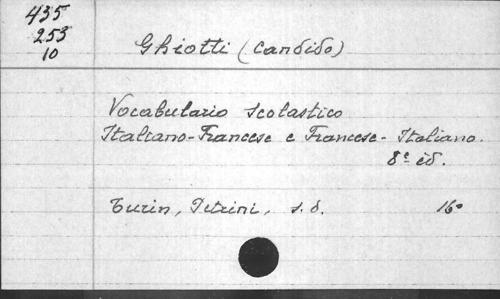 435
253
10
Ghiotti (Candido)
Vocabulario scolastico
Italiano-Francese e Francese-Italiano.
8e éd.
Turin, Petrini, s.d. 16°